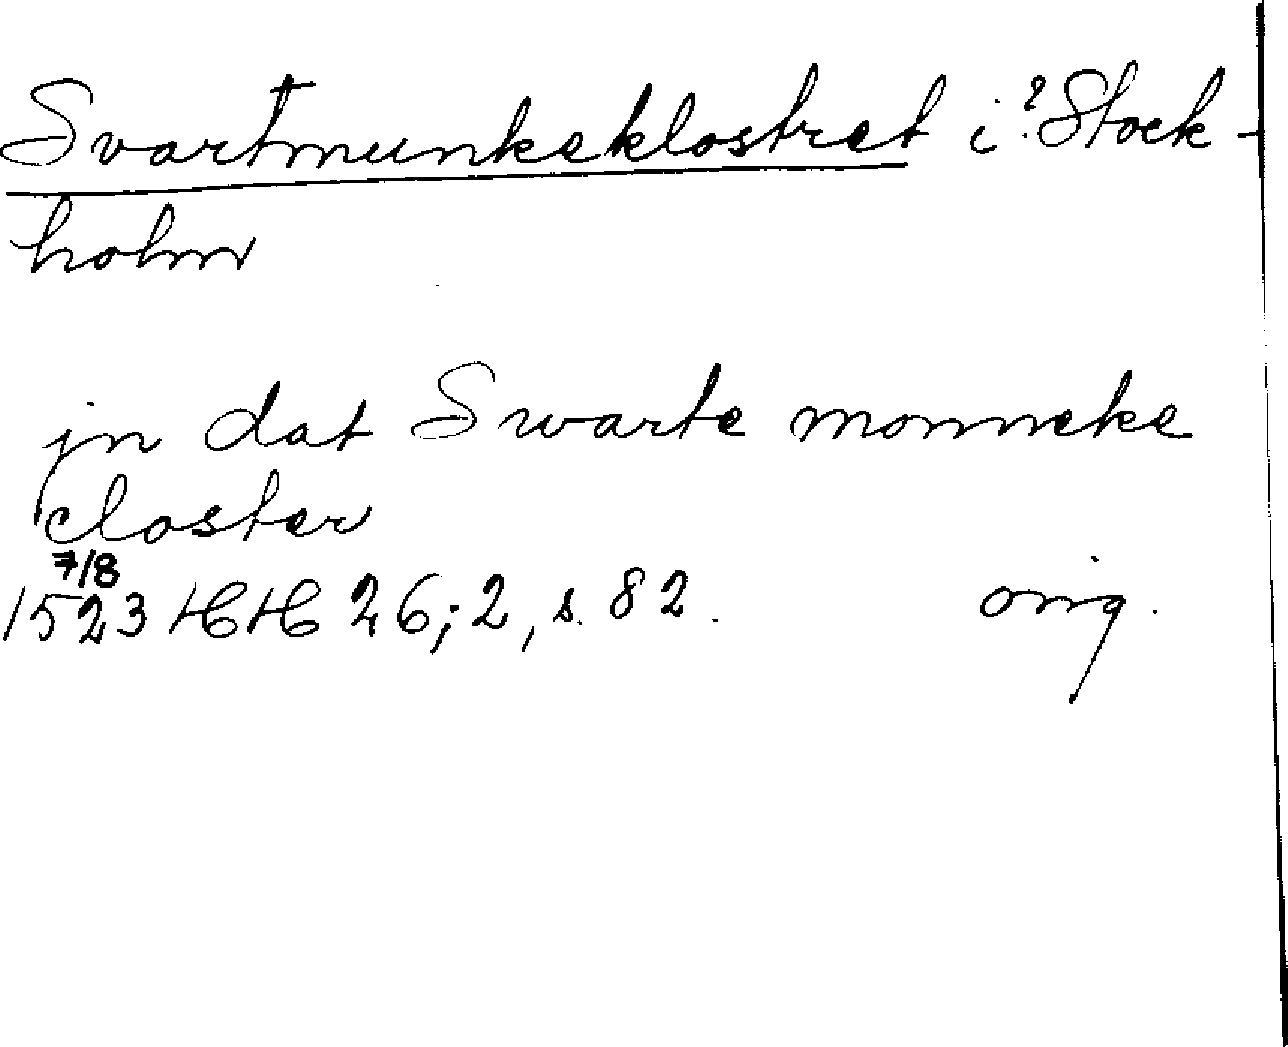 Svartmunkeklostret i ? Stock-
holm
jn dat Swarte monneke
closter
7/8
1523 HH 26; 2, s. 82. orig.